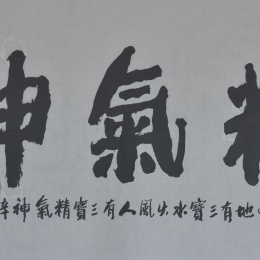 精氣神
地有三寶水火風人有三寶精氣神